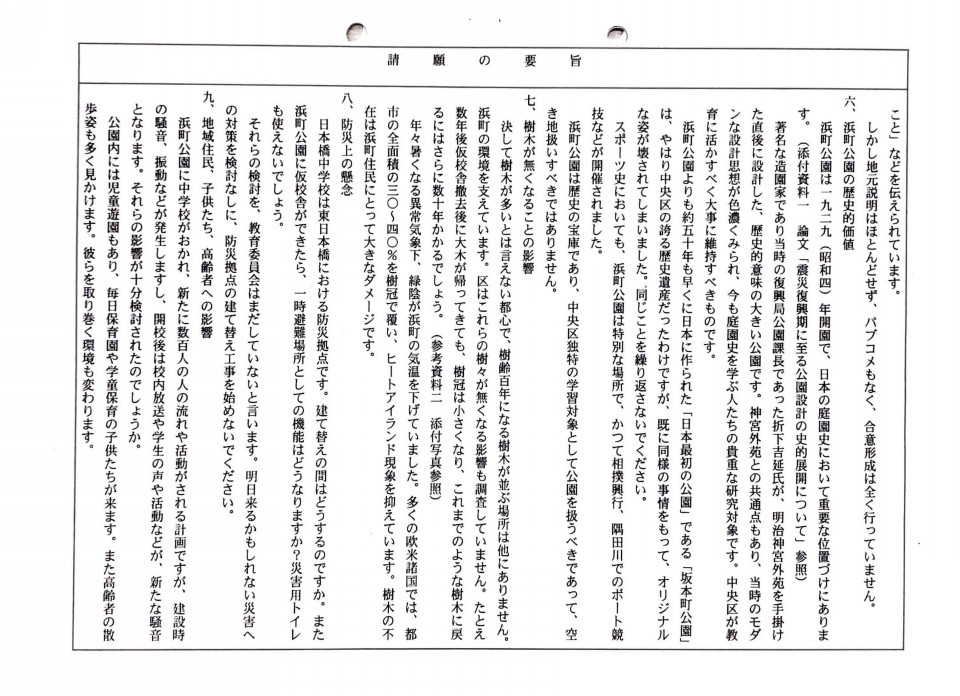 請願の要旨
こと」などを伝えられています。
しかし地元説明はほとんどせず、パブコメもなく、合意形成は全く行っていません。
六、浜町公園の歴史的価値
浜町公園は一九二九（昭和四）年開園で、日本の庭園史において重要な位置づけにありま
す。（添付資料一　論文「震災復興期に至る公園設計の史的展開について」参照）
著名な造園家であり当時の復興局公園課長であった折下吉延氏が、明治神宮外苑を手掛け
た直後に設計した、歴史的意味の大きい公園です。神宮外苑との共通点もあり、当時のモダ
ンな設計思想が色濃くみられ、今も庭園史を学ぶ人たちの貴重な研究対象です。中央区が教
育に活かすべく大事に維持すべきものです。
浜町公園よりも約五十年も早くに日本に作られた「日本最初の公園」である「坂本町公園」
は、やはり中央区の誇る歴史遺産だったわけですが、既に同様の事情をもって、オリジナル
な姿が壊されてしまいました。同じことを繰り返さないでください。
スポーツ史においても、浜町公園は特別な場所で、かつて相撲興行、隅田川でのボート競
技などが開催されました。
浜町公園は歴史の宝庫であり、中央区独特の学習対象として公園を扱うべきであって、空
き地扱いすべきではありません。
七、樹木が無くなることの影響
決して樹木が多いとは言えない都心で、樹齢百年になる樹木が並ぶ場所は他にありません。
浜町の環境を支えています。区はこれらの樹々が無くなる影響も調査していません。たとえ
数年後仮校舎撤去後に大木が帰ってきても、樹冠は小さくなり、これまでのような樹木に戻
るにはさらに数十年かかるでしょう。（参考資料二　添付写真参照）
年々暑くなる異常気象下、緑陰が浜町の気温を下げていました。多くの欧米諸国では、都
市の全面積の三〇～四〇％を樹冠で覆い、ヒートアイランド現象を抑えています。樹木の不
在は浜町住民にとって大きなダメージです。
八、防災上の懸念
日本橋中学校は東日本橋における防災拠点です。建て替えの間はどうするのですか。また
浜町公園に仮校舎ができたら、一時避難場所としての機能はどうなりますか？災害用トイレ
も使えないでしょう。
それらの検討を、教育委員会はまだしていないと言います。明日来るかもしれない災害へ
の対策を検討なしに、防災拠点の建て替え工事を始めないでください。
九、地域住民、子供たち、高齢者への影響
浜町公園に中学校がおかれ、新たに数百人の人の流れや活動がされる計画ですが、建設時
の騒音、振動などが発生しますし、開校後は校内放送や学生の声や活動などが、新たな騒音
となります。それらの影響が十分検討されたのでしょうか。
公園内には児童遊園もあり、毎日保育園や学童保育の子供たちが来ます。また高齢者の散
歩姿も多く見かけます。彼らを取り巻く環境も変わります。